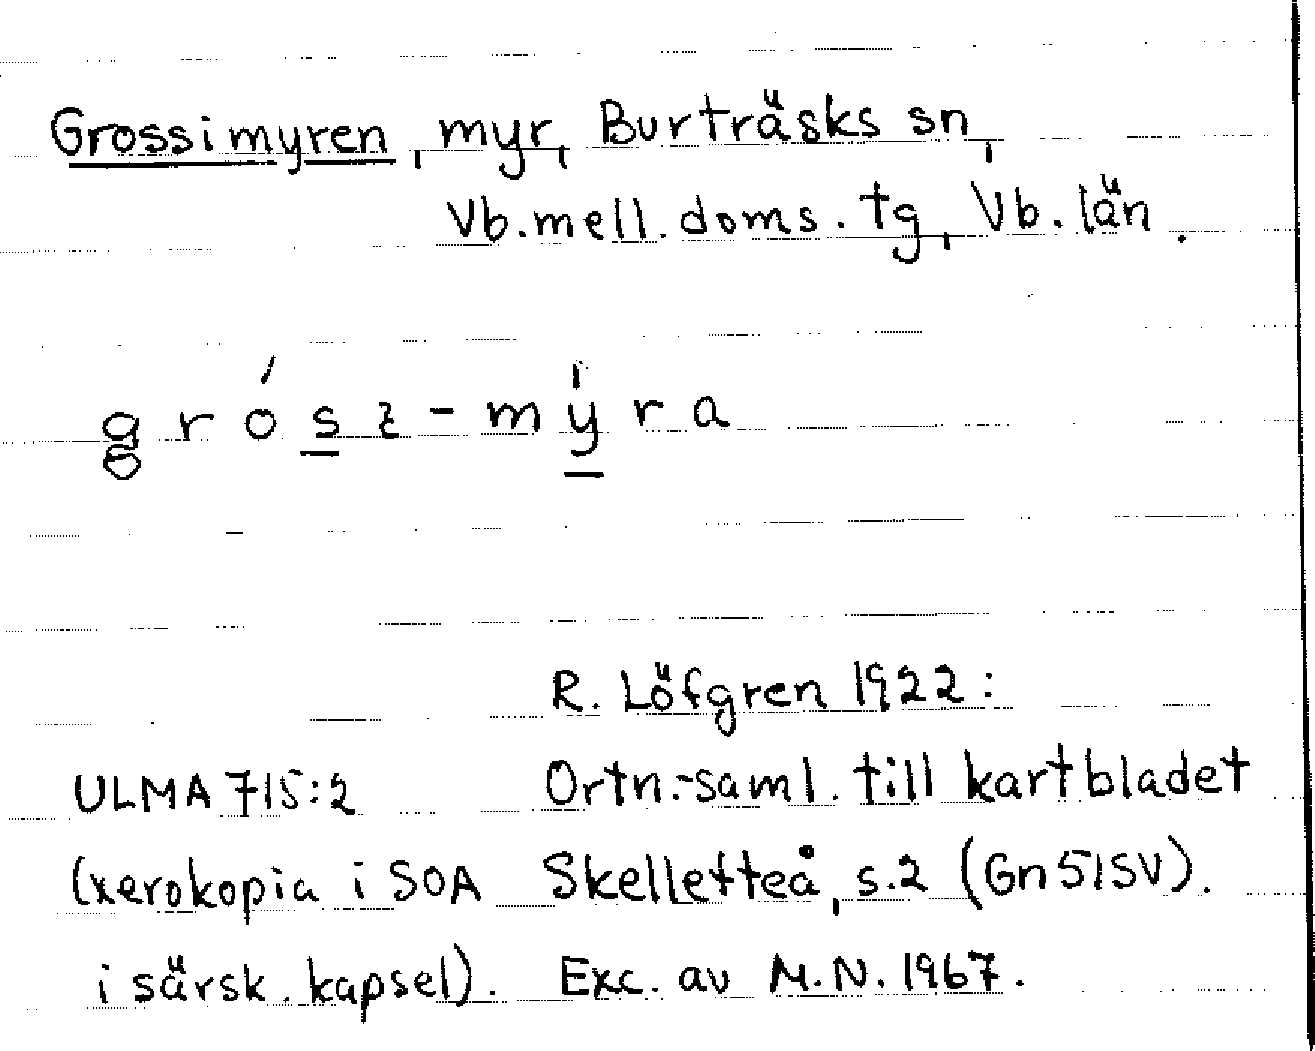 Grossimyren, myr, Burträsks sn,
Vb. mell. doms. tg, Vb. län.
g r ó s ɩ - m ý r a
R. Löfgren 1922:
ULMA 715:2 Ortn.-saml. till kartbladet
(xerokopia i SOA Skellefteå, s. 2 (Gn 51SV).
i särsk. kapsel). Exc. av M.N. 1967.